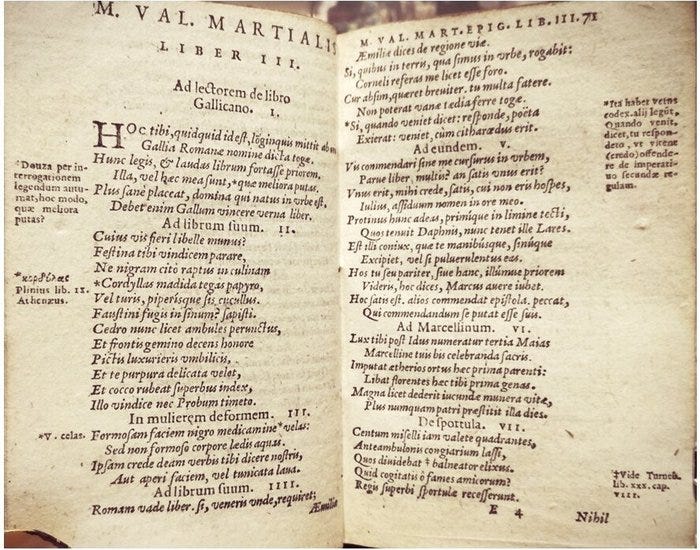 M. VAL. MARTIALIS
LIBER III.
Ad lectorem de libro
Gallicano. I.
HOc tibi, quidquid id est, lõginquis mittit ab
Gallia Romanæ nomine dicta togæ.
Hunc legis, & laudas librum fortasse priorem.
Illa, vel hæc mea sunt, *que meliora putas.
Plus sanè placeat, domina qui natus in vrbe est,
Debet enim Gallum vincere verna liber.
*Douza per in-
terrogationem
legendum autu-
mat, hoc modo,
quæ meliora
putas?
Ad librum suum. II.
Cuius vis fieri libelle munus?
Festina tibi vindicem parare,
Ne nigram citò raptus in culinam
*Cordyllas madida tegas papyro,
Vel turis, piperisque sis cucullus.
Faustini fugis in sinum? sapisti.
Cedro nunc licet ambules perunctus,
Et frontis gemino decens honore
Pictis luxurieris vmbilicis,
Et te purpura delicata velet,
Et cocco rubeat superbus index,
Illo vindice nec Probum timeto.
Plinius lib. IX.
Athenæus.
In mulierem deformem. III.
Formosam faciem nigro medicamine *velas:
Sed non formoso corpore lædis aquas.
Ipsam crede deam verbis tibi dicere nostris,
Aut aperi faciem, vel tunicata laua.
*V. celas.
Ad librum suum. IIII.
Romam vade liber. si, veneris vnde, requiret;
Æmiliæ
M. VAL. MART. EPIG. LIB. III. 71
Æmiliæ dices de regione viæ.
Si, quibus in terris, qua simus in vrbe, rogabit:
Corneli referas me licet esse foro.
Cur absim, quæret breuiter. tu multa fatere.
Non poterat vanæ tædia ferre togæ.
*Si, quando veniet dicet: responde, poëta
Exierat: veniet, cùm citharœdus erit.
*Ita habet vetus
codex. alij legũt,
Quando venit,
dicet, tu respon-
deto, vt veniet
(credo) offende-
re de imperati-
uo secundæ re-
gulam.
Ad eundem. V.
Vis commendari sine me cursurus in vrbem,
Parue liber, multis? an satis vnus erit?
Vnus erit, mihi crede, satis, cui non eris hospes,
Iulius, assiduum nomen in ore meo.
Protinus hunc adeas, primæque in limine tecti,
Quos tenuit Daphnis, nunc tenet ille Lares.
Est illi coniux, quæ te manibúsque, sinúque
Excipiet, vel si puluerulentus eas.
Hos tu seu pariter, siue hanc, illúmue priorem
Videris, hoc dices, Marcus auere iubet.
Hoc satis est. alios commendat epistola. peccat,
Qui commendandum se putat esse suis.
Ad Marcellinum. VI.
Lux tibi post Idus numeratur tertia Maias
Marcelline tuis bis celebranda sacris.
Imputat ætherios ortus hæc prima parenti:
Libat florentes hæc tibi prima genas.
Magna licet dederit iucundæ munera vitæ,
Plus numquam patri præstitit illa dies.
De sportula. VII.
Centum miselli iam valete quadrantes,
Anteambulonis congiarium lassi,
Quos diuidebat † balneator elixus.
Quid cogitatis ô fames amicorum?
Regis superbi sportulæ recesserunt.
†Vide Turneb.
lib. XXX. cap.
VIII.
E 4
Nihil